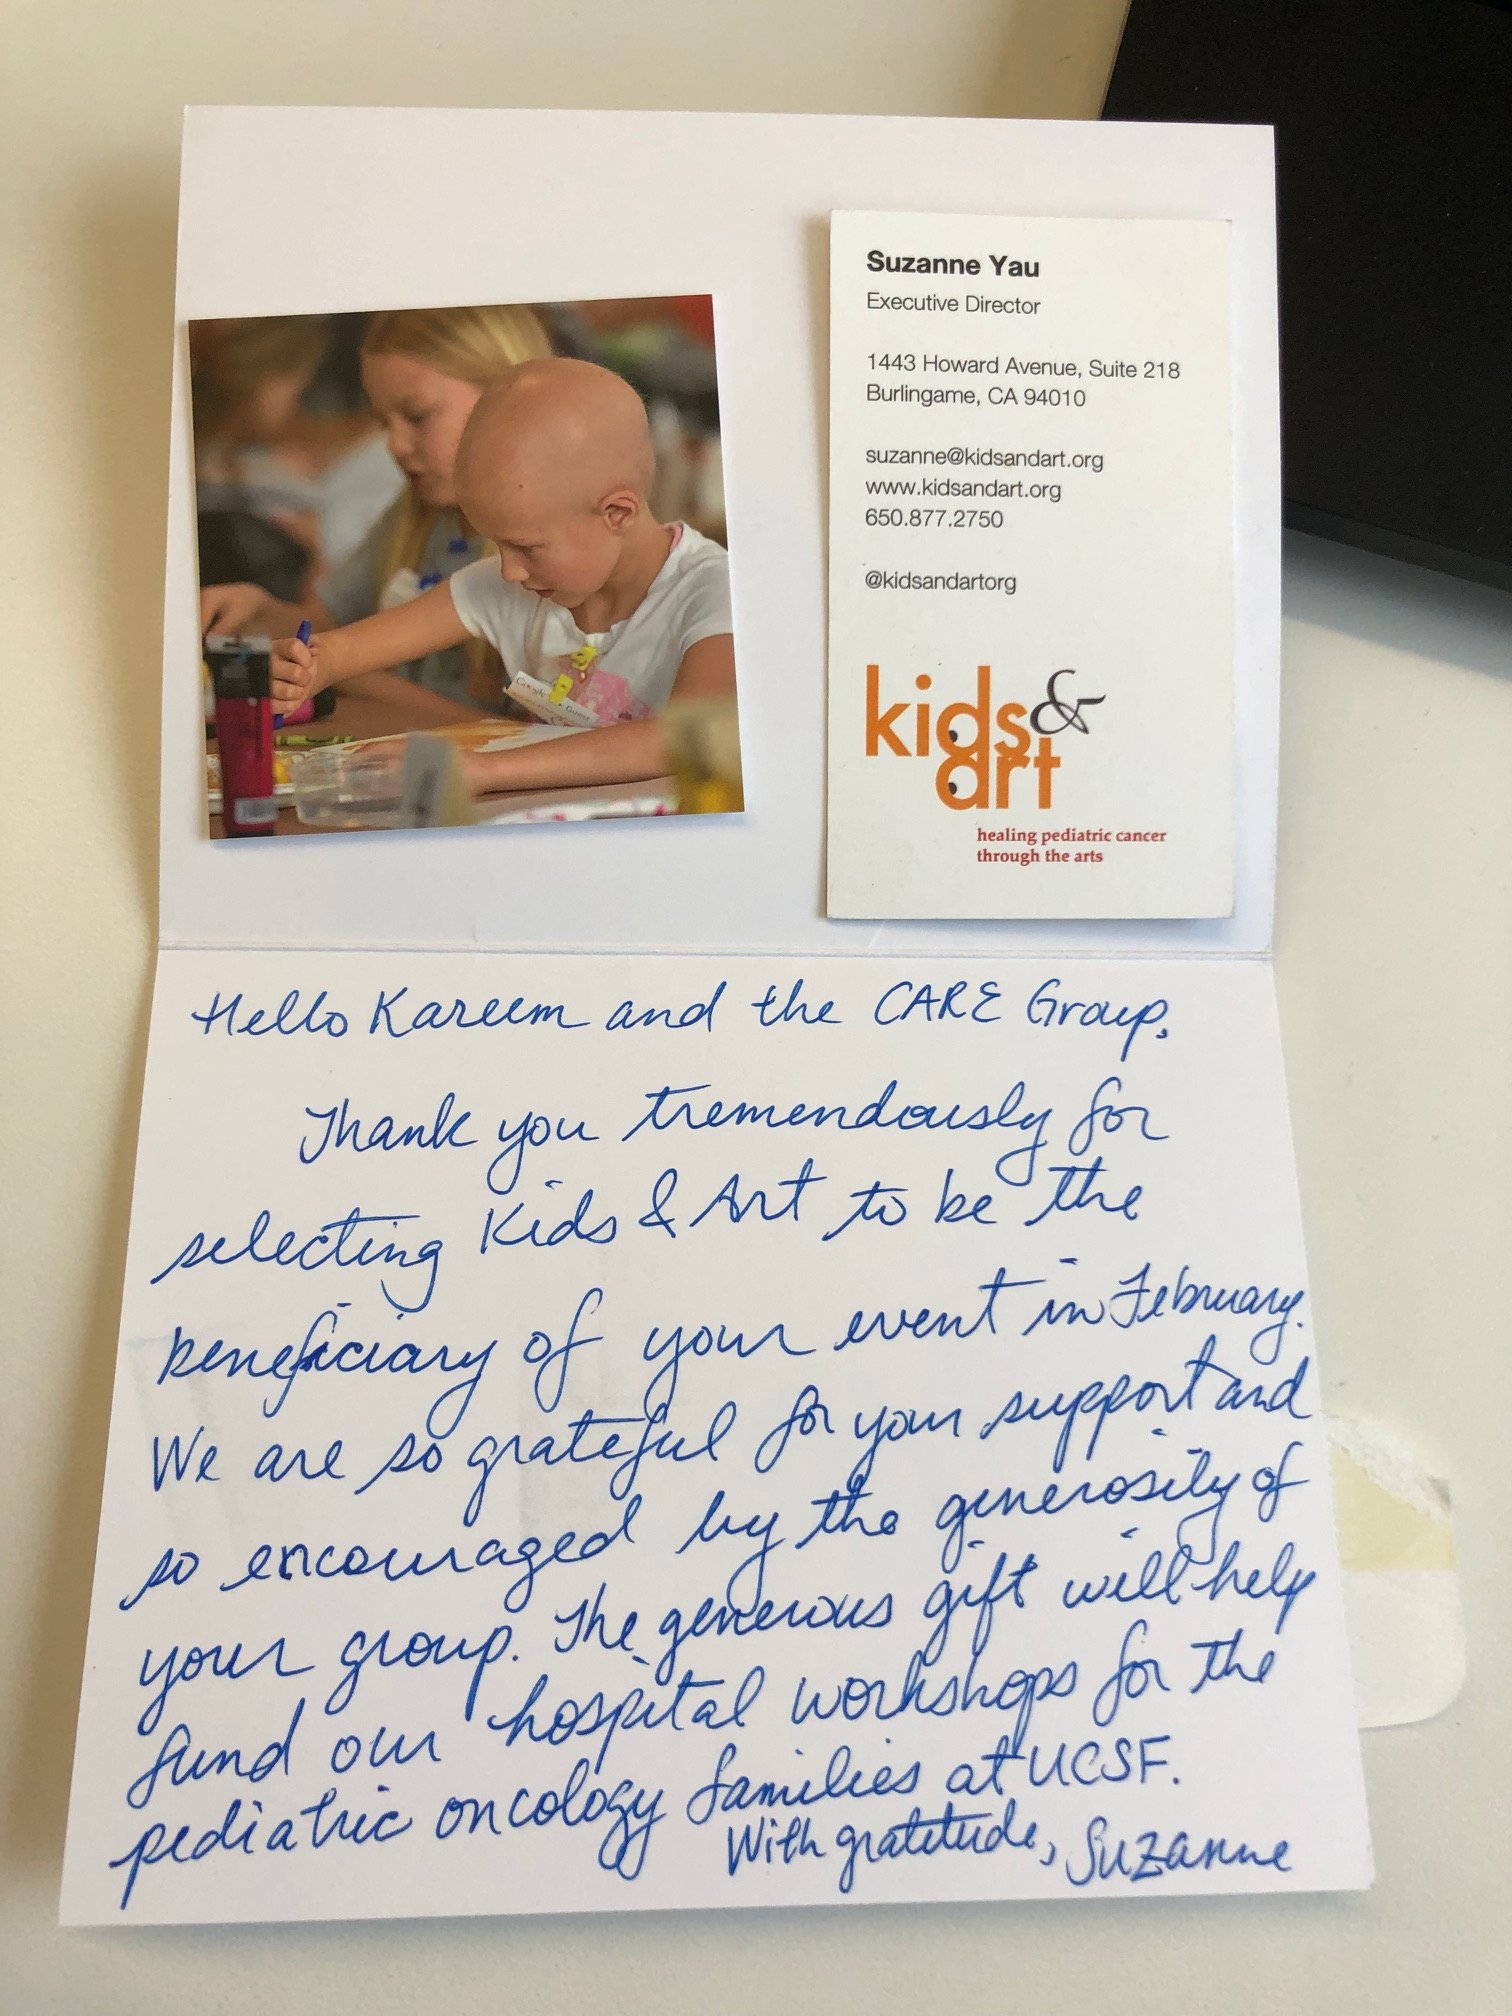 Suzanne Yau
Executive Director
1443 Howard Avenue, Suite 218
Burlingame, CA 94010
suzanne@kidsandart.org
www.kidsandart.org
650.877.2750
@kidsandartorg
kids&
art
healing pediatric cancer
through the arts
Google
Guest
Hello Kareem and the CARE Group,
Thank you tremendously for
selecting Kids & Art to be the
beneficiary of your event in February.
We are so grateful for your support and
so encouraged by the generosity of
your group. The generous gift will help
fund our hospital workshops for the
pediatric oncology families at UCSF.
With gratitude, Suzanne